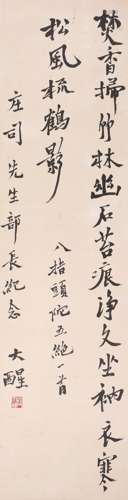 焚香掃竹林幽石苔痕净久坐衲衣寒
松風梳鶴影
八指頭陀五絕一首
庄司先生部長紀念
大醒